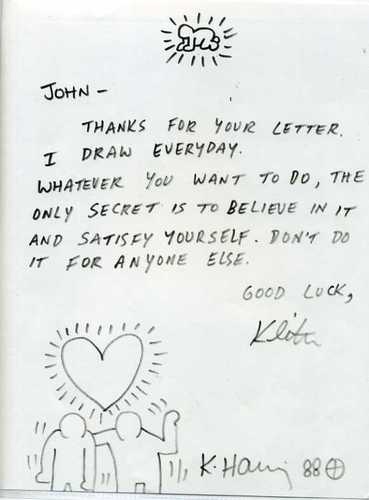 JOHN –
THANKS FOR YOUR LETTER.
I DRAW EVERYDAY.
WHATEVER YOU WANT TO DO, THE
ONLY SECRET IS TO BELIEVE IN IT
AND SATISFY YOURSELF. DON'T DO
IT FOR ANYONE ELSE.
GOOD LUCK,
Keith
K. Haring 88